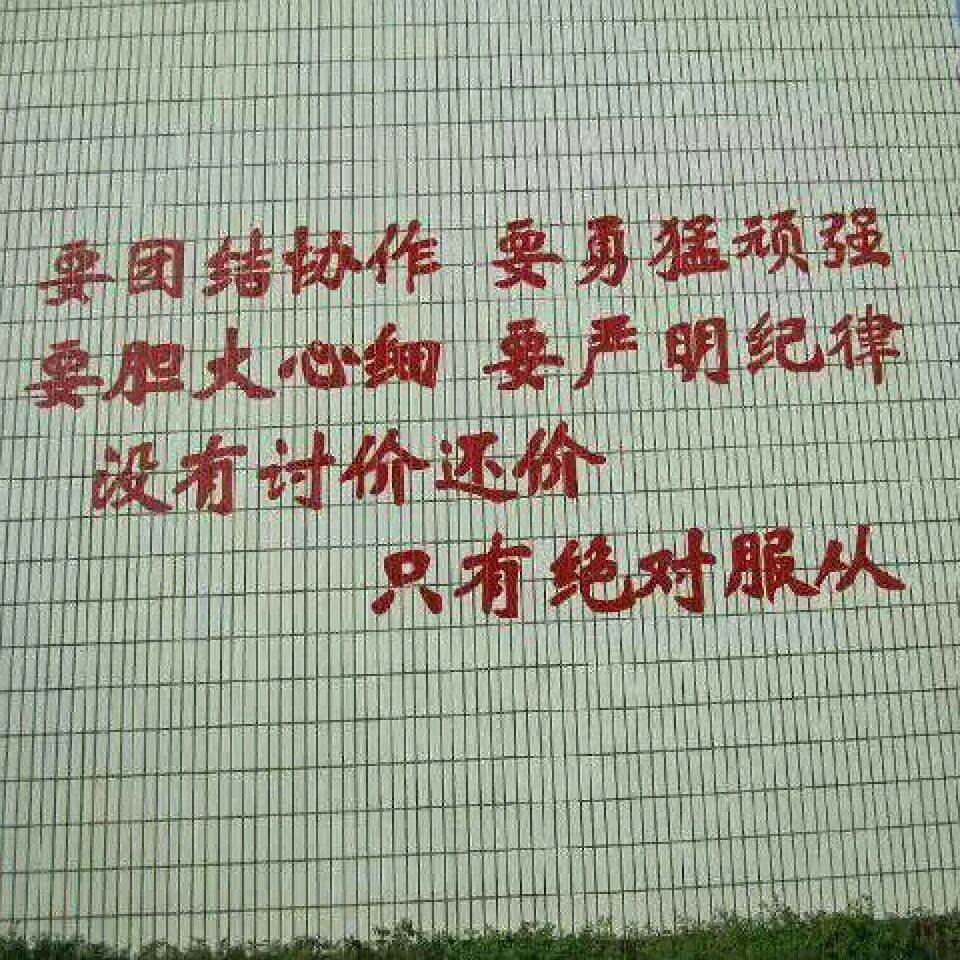 要团结协作 要勇猛顽强
要胆大心细 要严明纪律
没有讨价还价
只有绝对服从